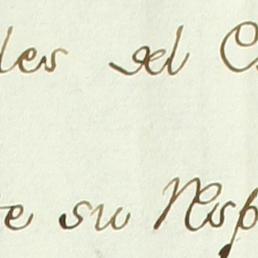 les del C
te su Resp